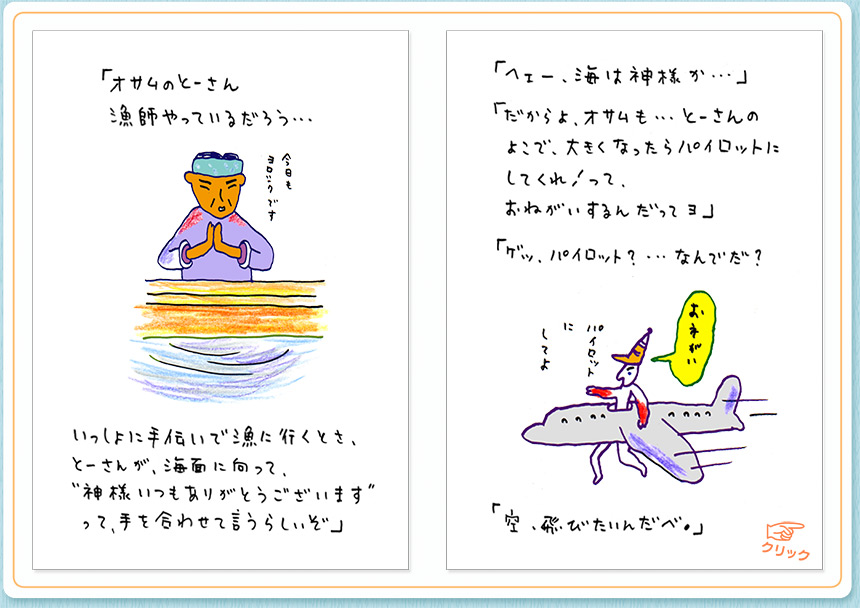 「オサムのとーさん
漁師やっているだろう…
今日も
ヨロシクです
いっしょに手伝いで漁に行くとさ、
とーさんが、海面に向って、
"神様いつもありがとうございます"
って、手を合わせて言うらしいぞ」
「ヘェー、海は神様か…」
「だからよ、オサムも…とーさんの
よこで、大きくなったらパイロットに
してくれ!って、
おねがいするんだってヨ」
「ゲッ、パイロット?…なんでだ?
おネがい
パイロット
に
してよ
「空、飛びたいんだべ。」
クリック